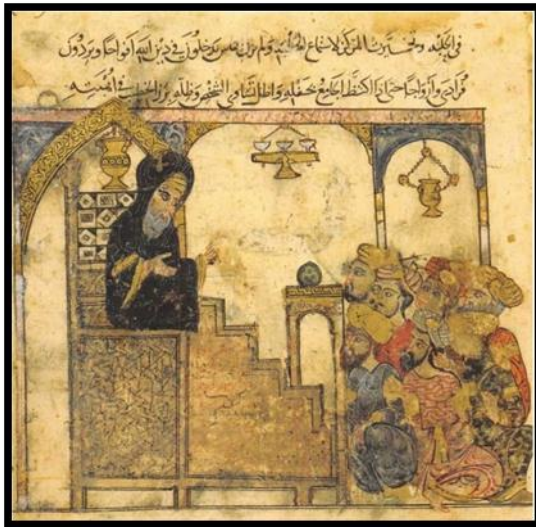 في الحلبه وتخيرت المركز لاستماع الخطبه ولم يزل الناس يدخلون في دين الله افواجا ويردون
فرادى وازواجا حتى اذا اكتظ الجامع بحفله واظل تساوى الشخص وظله برز الخطيب في اهبته